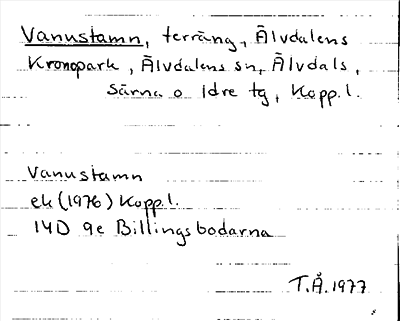 Vanustamn, terräng, Älvdalens
Kronopark, Älvdalens sn, Älvdals,
Särna o Idre tg, Kopp. l.
Vanustamn
ek (1976) Kopp. l.
14D 9e Billingsbodarna
T.Å. 1977